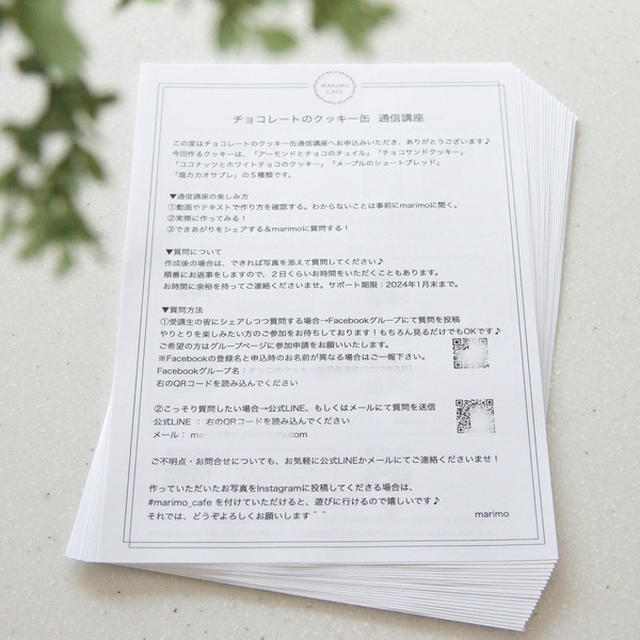 MARIMO
CAFE
チョコレートのクッキー缶 通信講座
この度はチョコレートのクッキー缶通信講座へお申込みいただき、ありがとうございます♪
今回作るクッキーは、「アーモンドとチョコのチュイル」「チョコサンドクッキー」
「ココナッツとホワイトチョコのクッキー」「メープルのショートブレッド」
「塩カカオサブレ」の５種類です。
▼通信講座の楽しみ方
①動画やテキストで作り方を確認する。わからないことは事前にmarimoに聞く。
②実際に作ってみる！
③できあがりをシェアする＆marimoに質問する！
▼質問について
作成後の場合は、できれば写真を添えて質問してください♪
順番にお返事をしますので、２日くらいお時間をいただくこともあります。
お時間に余裕を持ってご連絡くださいませ。サポート期限：2024年1月末まで。
▼質問方法
①受講生の皆にシェアしつつ質問する場合→Facebookグループにて質問を投稿
やりとりを楽しみたい方のご参加をお待ちしております！もちろん見るだけでもOKです♪
ご希望の方はグループページに参加申請をお願いします。
※Facebookの登録名と申込時のお名前が異なる場合はご一報下さい。
Facebookグループ名：
右のQRコードを読み込んでください
②こっそり質問したい場合→公式LINE、もしくはメールにて質問を送信
公式LINE ： 右のQRコードを読み込んでください
メール：
ご不明点・お問合せについても、お気軽に公式LINEかメールにてご連絡くださいませ！
作っていただいたお写真をInstagramに投稿してくださる場合は、
#marimo_cafe を付けていただけると、遊びに行けるので嬉しいです♪
それでは、どうぞよろしくお願いします＾＾
marimo